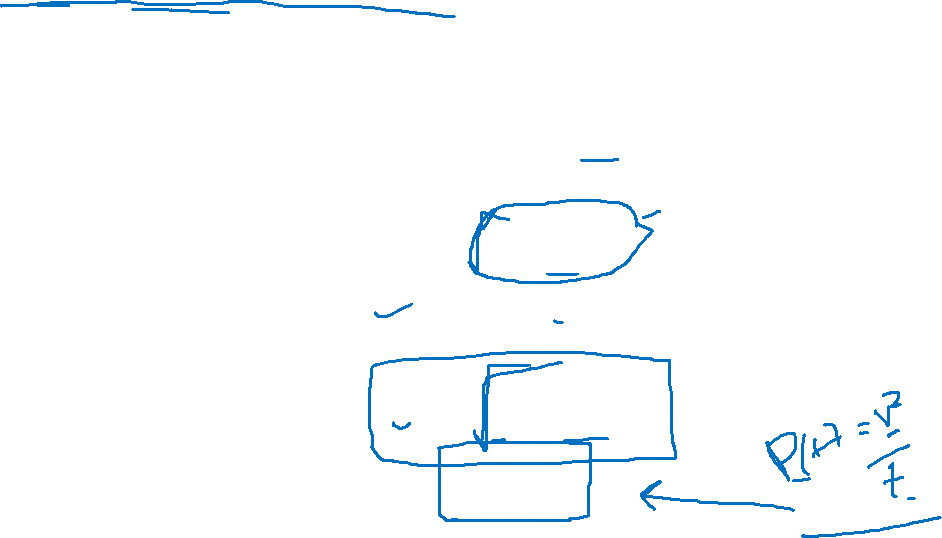 P(t) = v²/t